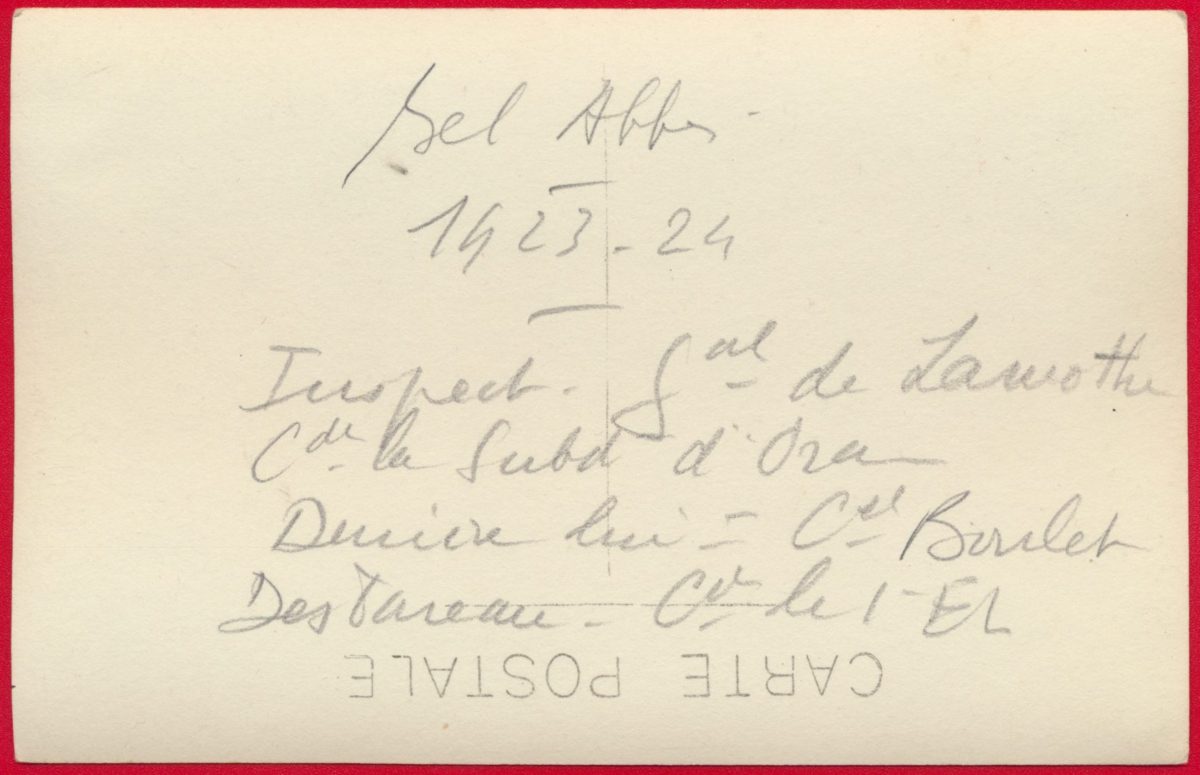 Bel Abbès
1923-24
Inspect. Gal de Lamothe
Cdt la Subd d'Oran
Derrière lui - Cel Boulet
Desbareau - Ct le 1er EL
CARTE POSTALE